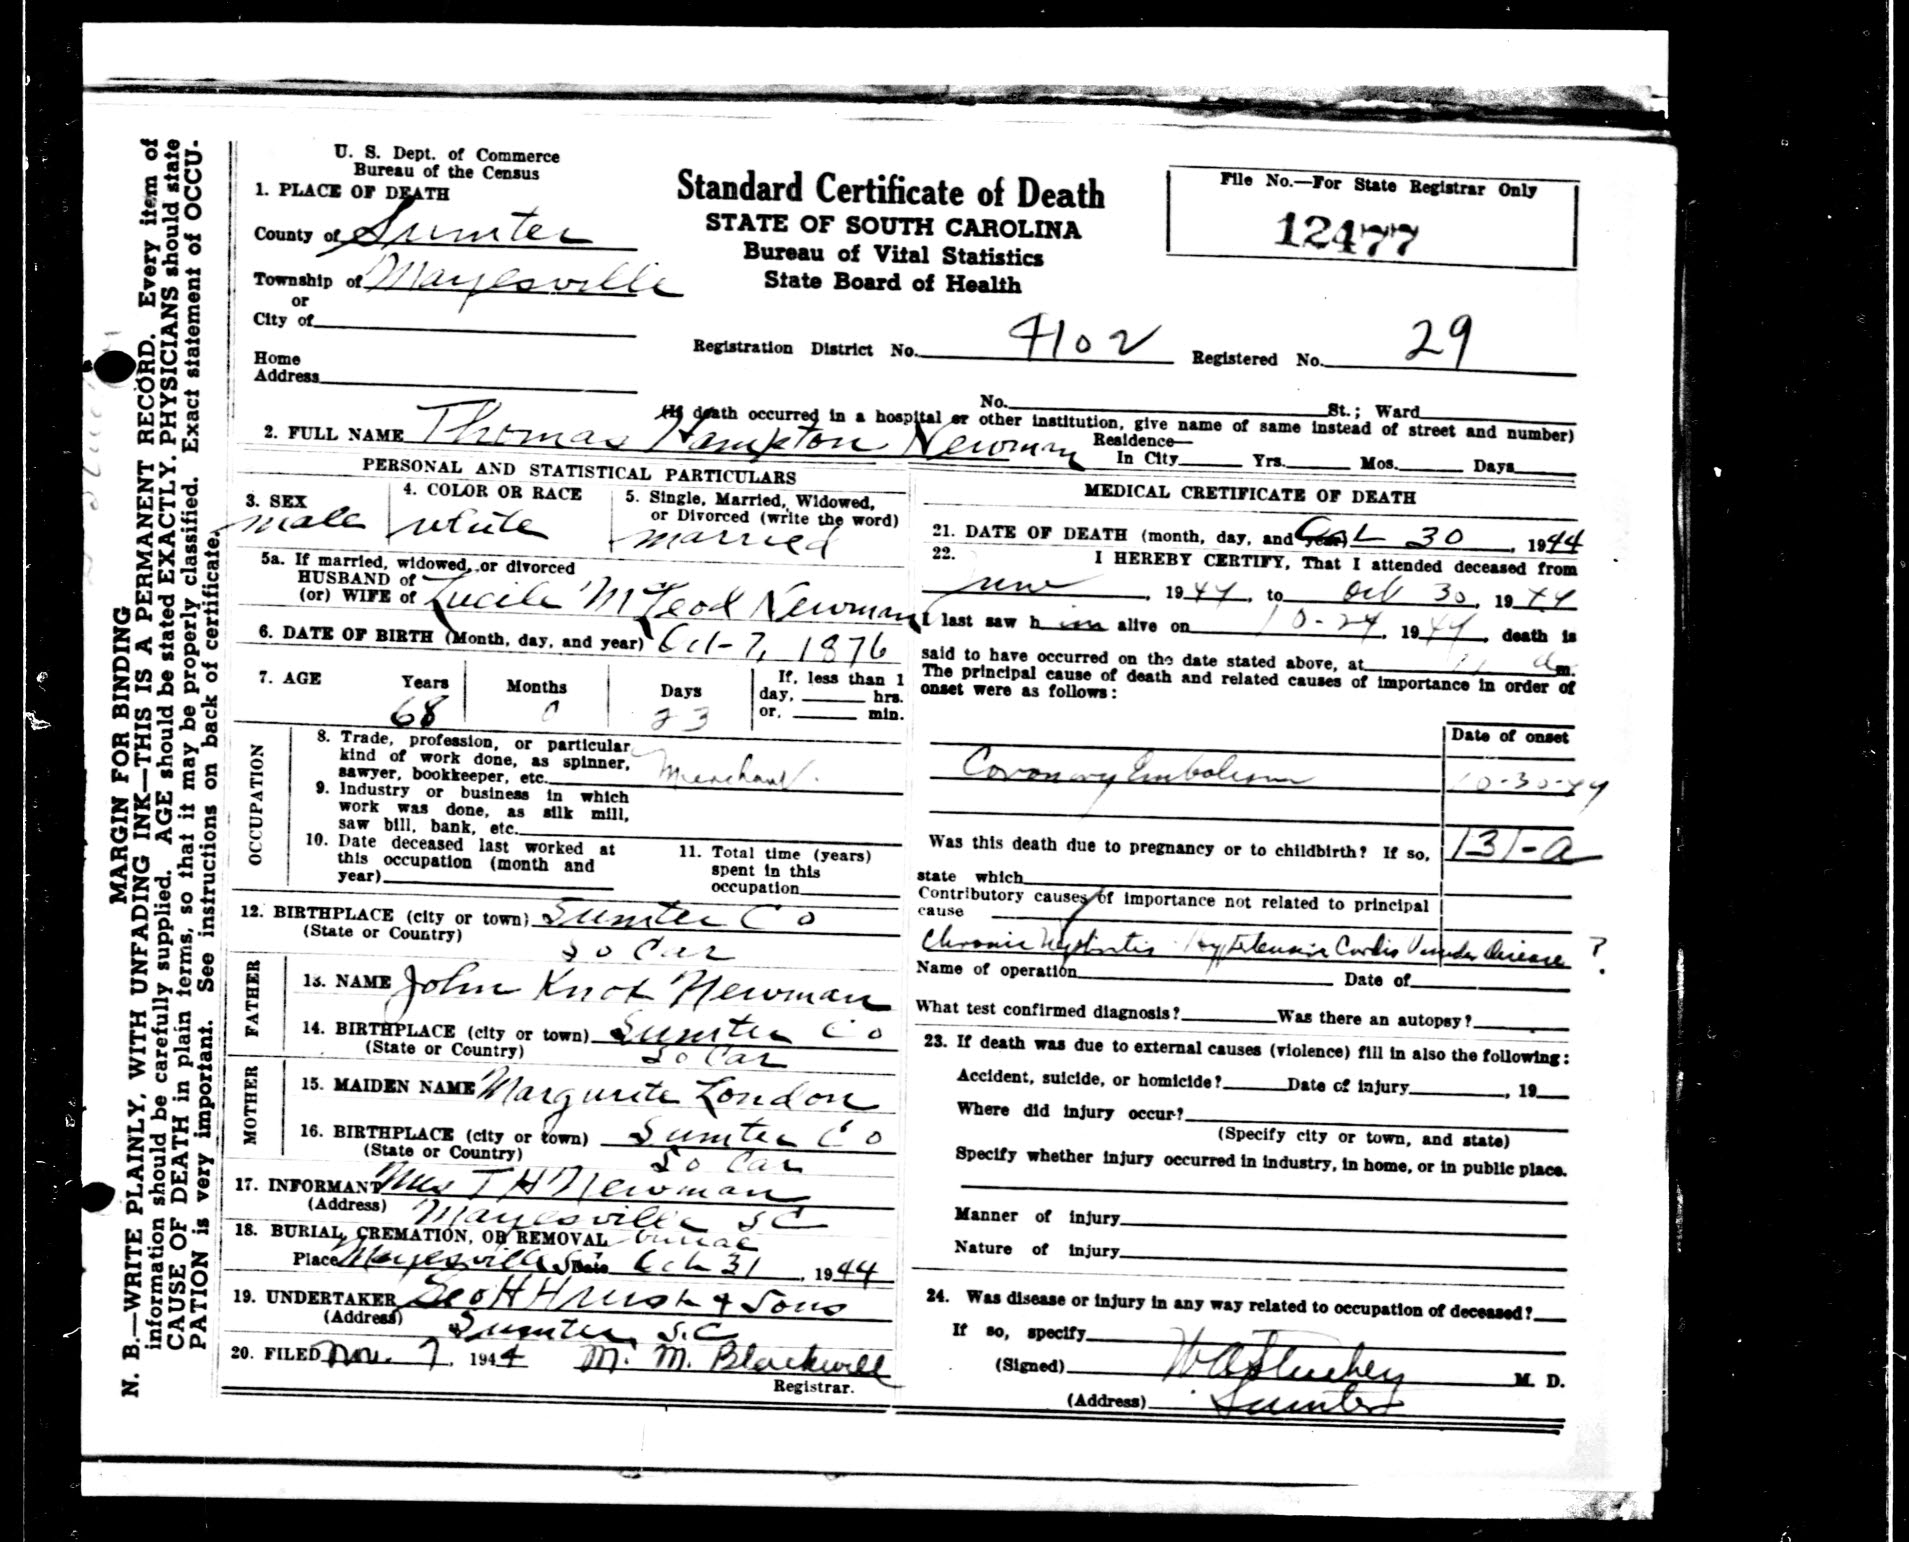 U. S. Dept. of Commerce
Bureau of the Census
1. PLACE OF DEATH
County of Sumter
Township of Mayesville
or
City of
Home
Address
Standard Certificate of Death
STATE OF SOUTH CAROLINA
Bureau of Vital Statistics
State Board of Health
File No.—For State Registrar Only
12477
Registration District No. 4102 Registered No. 29
No. St.; Ward
(If death occurred in a hospital or other institution, give name of same instead of street and number)
2. FULL NAME Thomas Hampton Newman
Residence—
In City Yrs. Mos. Days
PERSONAL AND STATISTICAL PARTICULARS
3. SEX
male
4. COLOR OR RACE
white
5. Single, Married, Widowed,
or Divorced (write the word)
married
5a. If married, widowed, or divorced
HUSBAND of
(or) WIFE of Lucile McLeod Newman
6. DATE OF BIRTH (Month, day, and year) Oct-7, 1876
7. AGE Years Months Days If, less than 1
day, hrs.
or, min.
68 0 23
OCCUPATION
8. Trade, profession, or particular
kind of work done, as spinner,
sawyer, bookkeeper, etc. Merchant.
9. Industry or business in which
work was done, as silk mill,
saw bill, bank, etc.
10. Date deceased last worked at
this occupation (month and
year)
11. Total time (years)
spent in this
occupation
12. BIRTHPLACE (city or town) Sumter Co
(State or Country)
So Car
FATHER
13. NAME John Knox Newman
14. BIRTHPLACE (city or town) Sumter Co
(State or Country) So Car
MOTHER
15. MAIDEN NAME Margurite London
16. BIRTHPLACE (city or town) Sumter Co
(State or Country) So Car
17. INFORMANT Mrs T H Newman
(Address) Mayesville SC
18. BURIAL, CREMATION, OR REMOVAL burial
Place Mayesville Date Oct 31, 1944
19. UNDERTAKER & Sons
(Address) Sumter, S.C.
20. FILED Nov. 7, 1944 M. M. Blackwell
Registrar.
MEDICAL CRETIFICATE OF DEATH
21. DATE OF DEATH (month, day, and year) Oct 30, 1944
22. I HEREBY CERTIFY, That I attended deceased from
June, 1944, to Oct 30, 1944
I last saw him alive on 10-24, 1944, death is
said to have occurred on the date stated above, at 11 a m.
The principal cause of death and related causes of importance in order of
onset were as follows:
Date of onset
Coronary Embolism 10-30-44
Was this death due to pregnancy or to childbirth? If so, 131-a
state which
Contributory causes of importance not related to principal
cause
Chronic Nephritis Hypertensive Cardio Vascular Disease ?
Name of operation Date of
What test confirmed diagnosis? Was there an autopsy?
23. If death was due to external causes (violence) fill in also the following:
Accident, suicide, or homicide? Date of injury, 19
Where did injury occur?
(Specify city or town, and state)
Specify whether injury occurred in industry, in home, or in public place.
Manner of injury
Nature of injury
24. Was disease or injury in any way related to occupation of deceased?
If so, specify
(Signed) M. D.
(Address) Sumter
MARGIN FOR BINDING
N. B.—WRITE PLAINLY, WITH UNFADING INK—THIS IS A PERMANENT RECORD. Every item of
information should be carefully supplied. AGE should be stated EXACTLY. PHYSICIANS should state
CAUSE OF DEATH in plain terms, so that it may be properly classified. Exact statement of OCCU-
PATION is very important. See instructions on back of certificate.